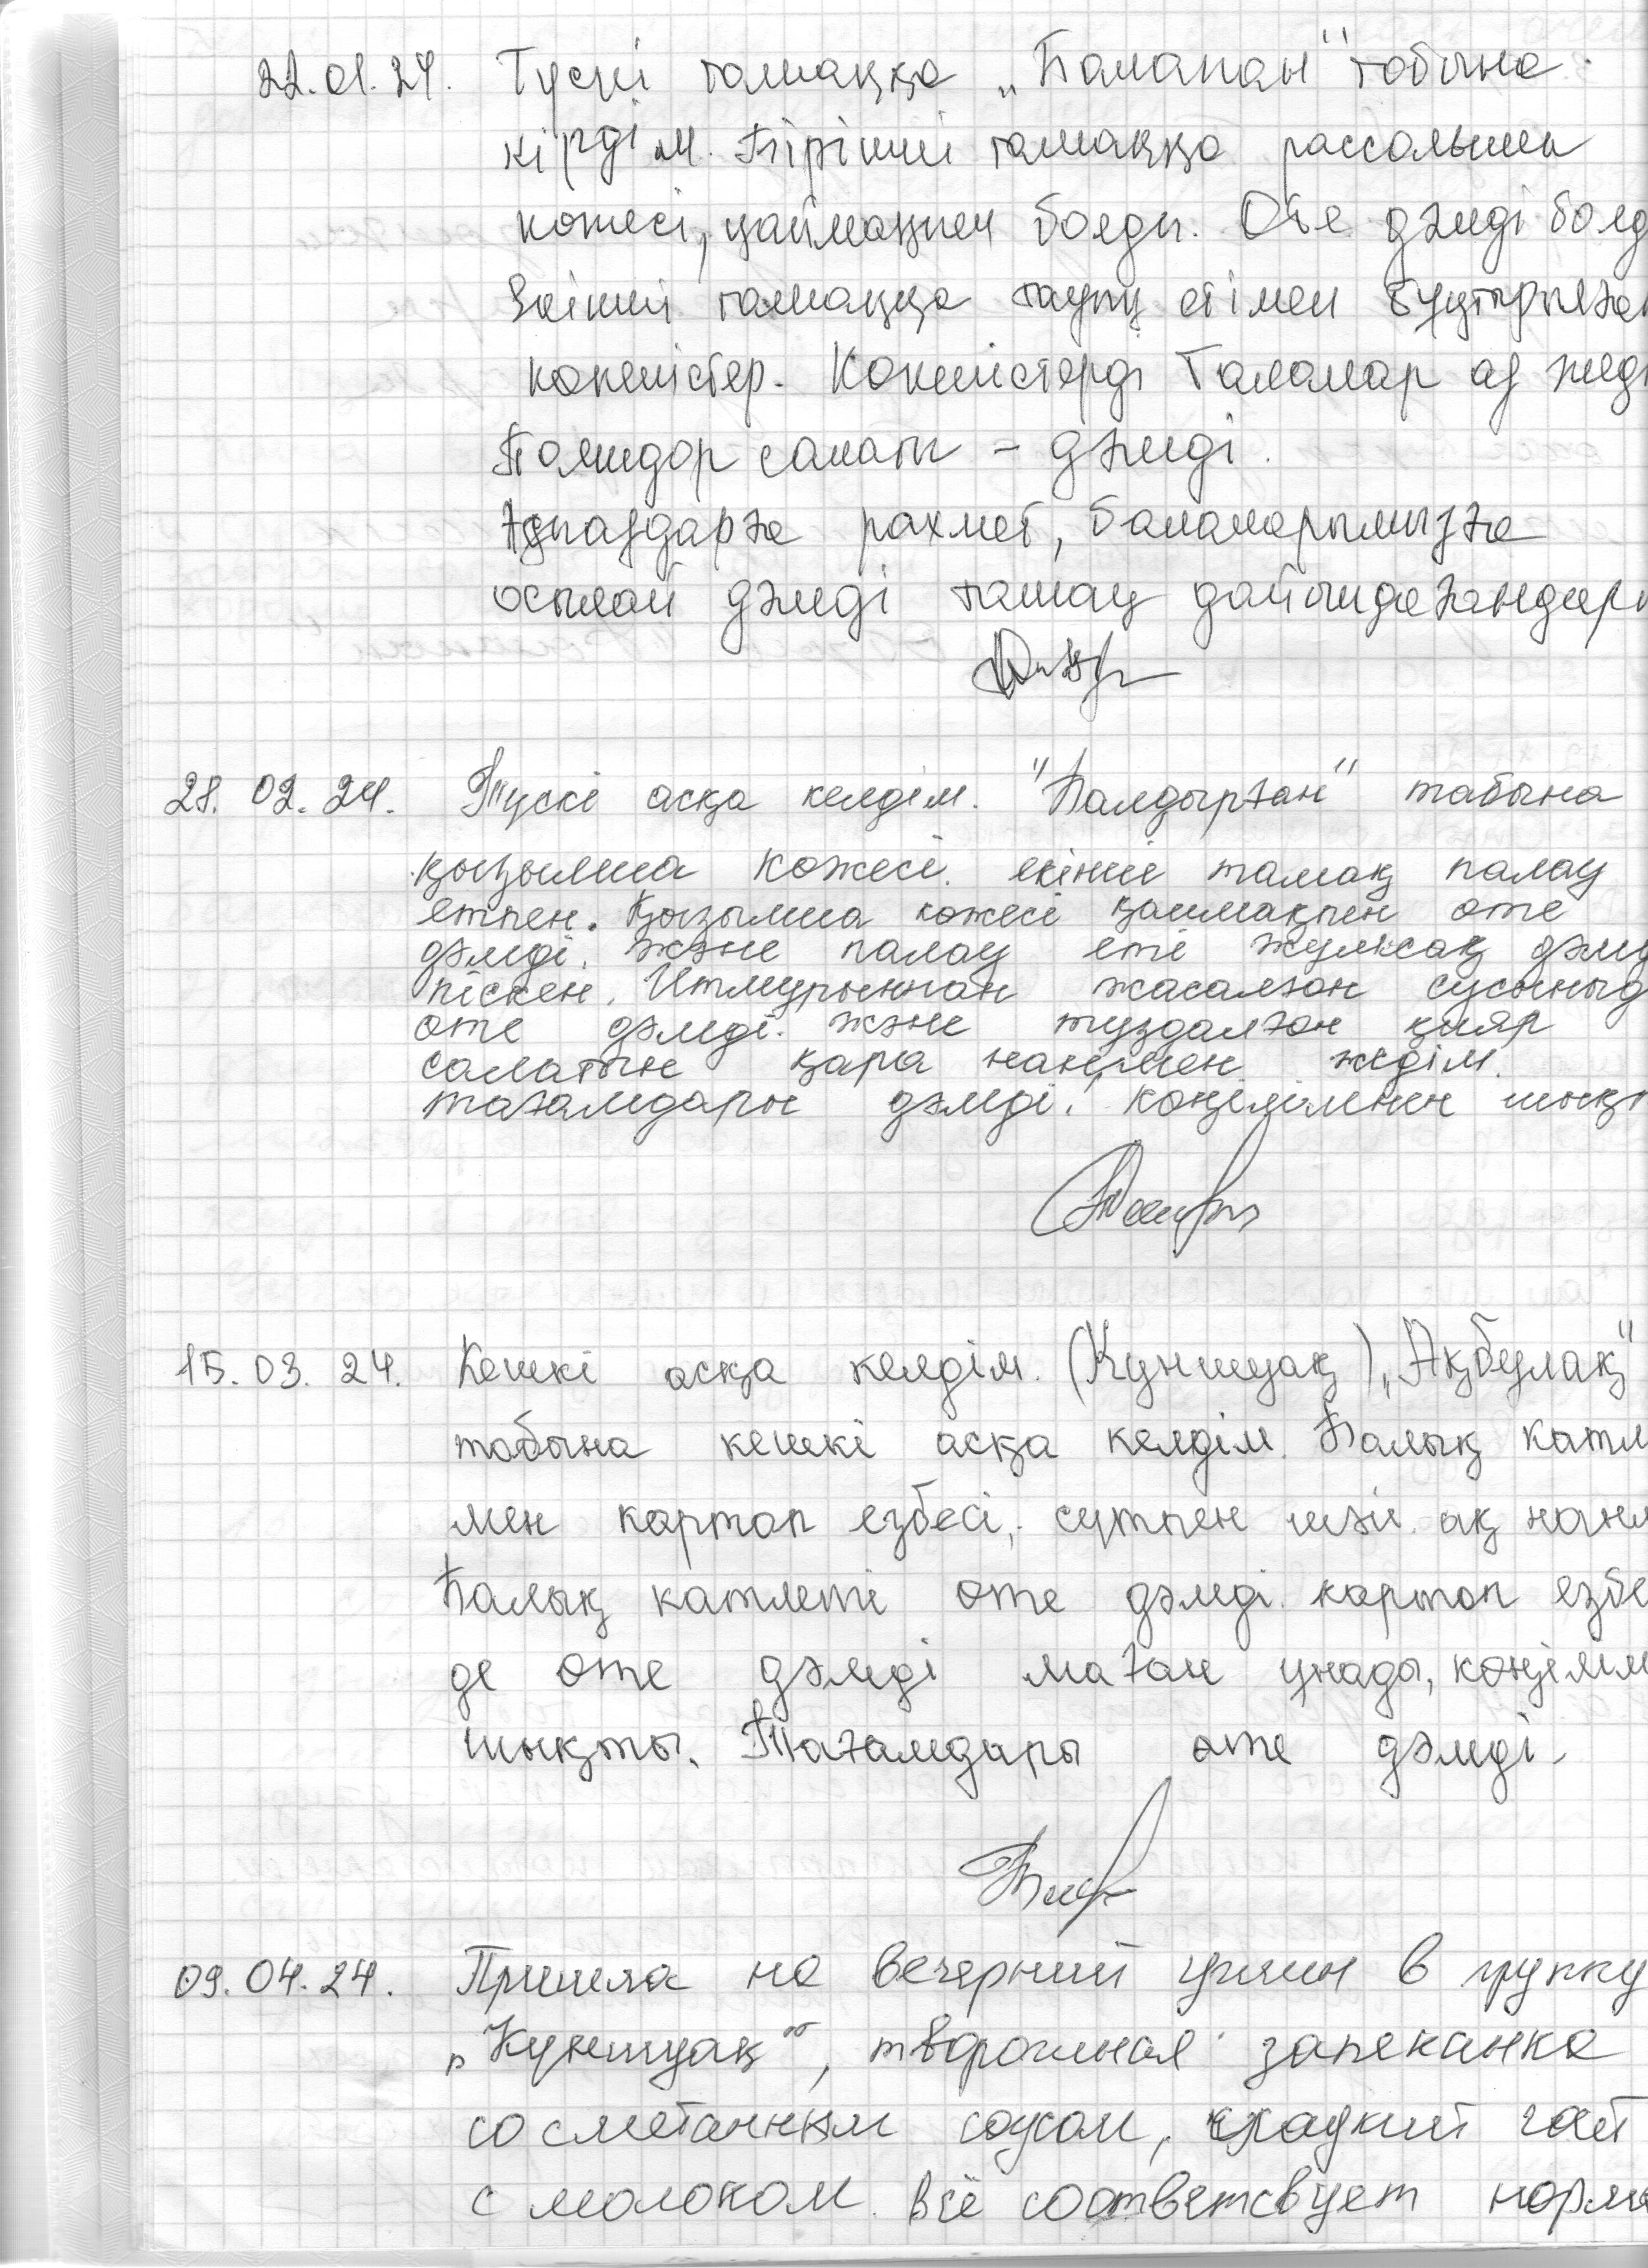 22.01.24. Түскі тамаққа „Балапан" тобына
кірдім. Бірінші тамаққа рассольник
көжесі, қаймақпен болды. Өте дәмді болд
Екінші тамаққа тауық етімен бұқтырылған
көкөністер. Көкөністерді балалар аз жеді
Помидор салаты – дәмді.
Аспаздарға рахмет, балаларымызға
осылай дәмді тамақ дайындағандары
28. 02. 24. Түскі асқа келдім. "Балдырған" табына
қызылша көжесі. екінші тамақ палау
етпен. Қызылша көжесі қаймақпен өте
дәмді. және палау еті жұмсақ дәмд
піскен. Итмұрыннан жасалған сусыныд
өте дәмді. және тұздалған қияр
салатын қара нанмен жедім.
тағамдары дәмді! көңілімнен шық
15. 03. 24. Кешкі асқа келдім. (Күншуақ) „Ақбулақ"
тобына кешкі асқа келдім. Балық катл
мен картоп езбесі, сүтпен шәй. ақ нанм
Балық катлеті өте дәмді. картоп езбе
де өте дәмді маған ұнады, көңілім
шықты. Тағамдары өте дәмді.
09. 04. 24. Пришла на вечерний ужин в группу
„Күншуақ", творожная запеканка
со сметанным соусом, сладкий чай
с молоком. Всё соответсвует норма